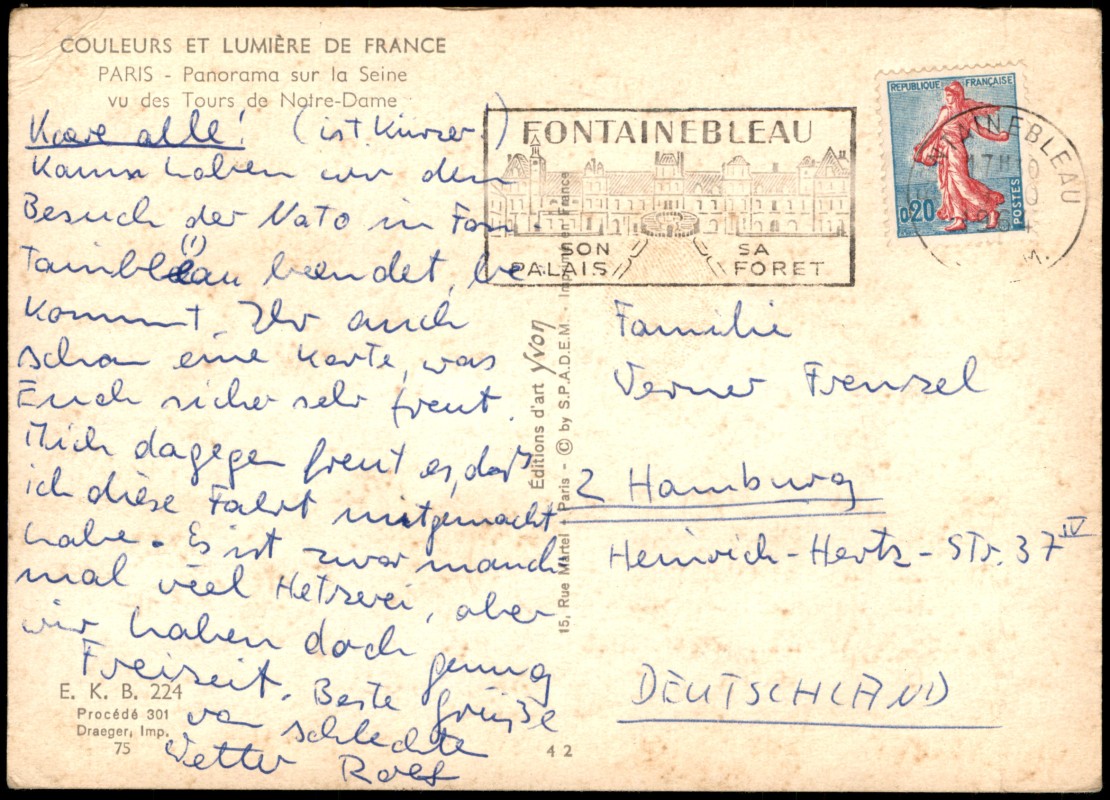 COULEURS ET LUMIÈRE DE FRANCE
PARIS - Panorama sur la Seine
vu des Tours de Notre-Dame
Kære alle! (ist Kürzer)
Kaum haben wir den
Besuch der Nato in Fon-
tainbleau beendet, be
kommt Ihr auch
schon eine Karte, was
Euch sicher sehr freut.
Mich dagegen freut es, daß
ich diese Fahrt mitgemacht
habe. Es ist zwar manch-
mal viel Hetzerei, aber
wir haben doch genug
Freizeit. Beste Grüße
von schlechte
Wetter Rolf
E. K. B. 224
Procédé 301
Draeger, Imp.
75
42
Éditions d'art Yvon
15, Rue Martel - Paris - © by S.P.A.D.E.M. - Imprimé en France
FONTAINEBLEAU
SON PALAIS
SA FORET
REPUBLIQUE FRANÇAISE
0,20
POSTES
FONTAINEBLEAU
17H10
Familie
Verner Frenzel
2 Hamburg
Heinrich-Hertz-Str. 37 IV
DEUTSCHLAND